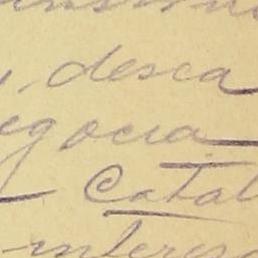 desea
egocia
Catal
interes